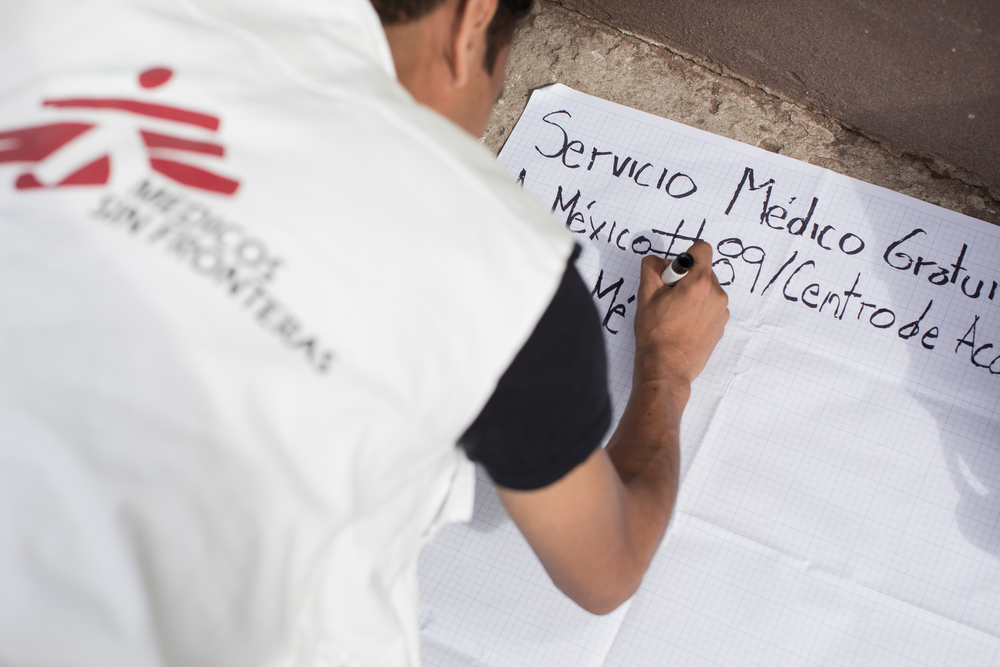 MEDICOS
SIN FRONTERAS
Servicio Médico Gratui
México # 89/Centro de Aco
Mé